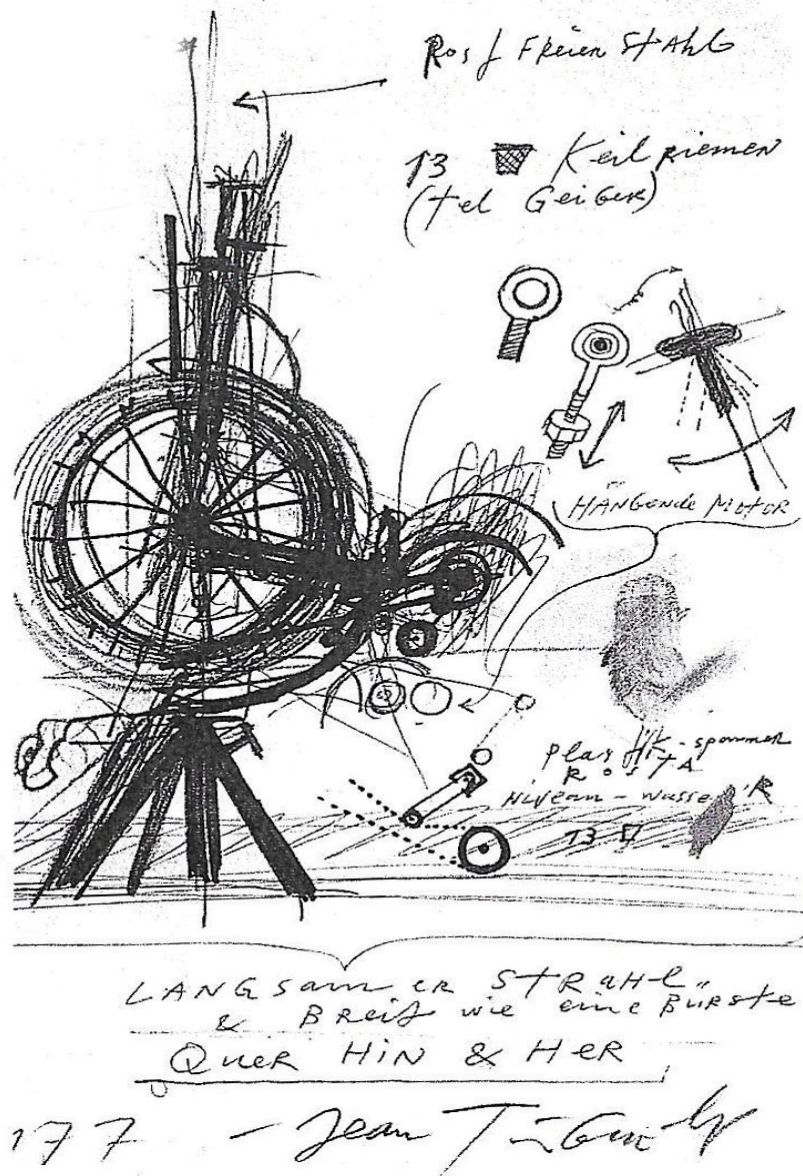 Rost FReien StAhl
13 Keilriemen
(tel GeiGeR)
HÄNGende MotoR
Plastik-spanner
RostA
Niveau-wasser
13
LANGsamer StRAHL
& BReit wie eine Bürste
QueR HiN & HeR
177 - Jean Tinguely